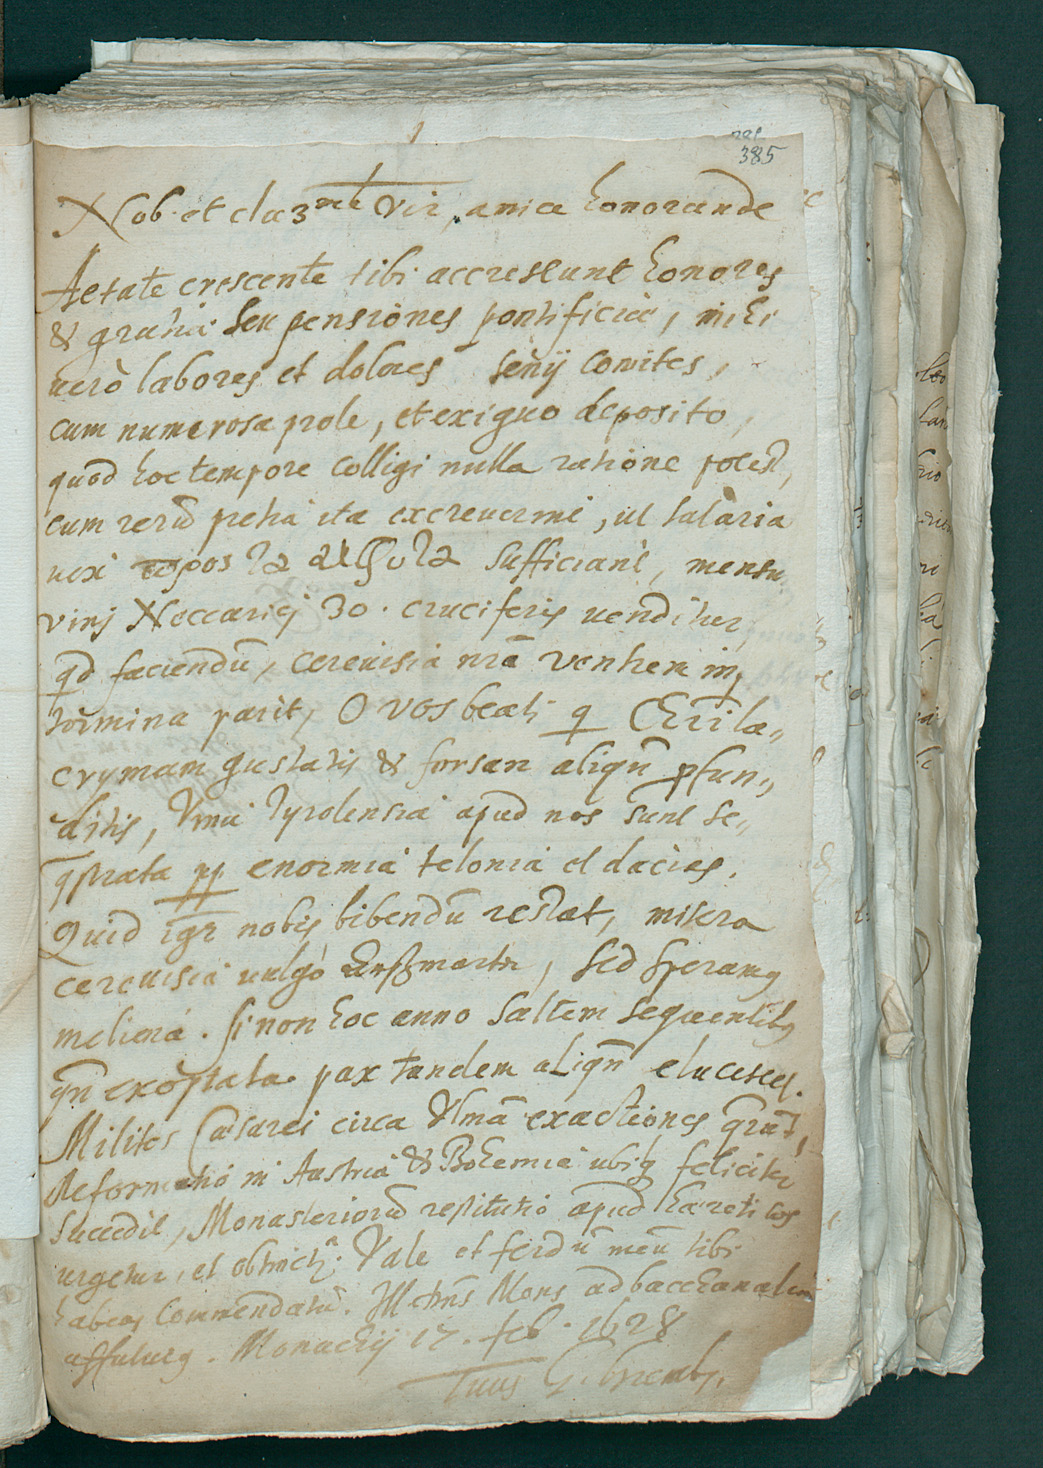 385
Nob. et clar.me Vir, amice honorande
Aetate crescente tibi accrescunt honores
& gratia seu pensiones pontificiae, mihi
verò labores et dolores senij comites,
cum numerosa prole, et exiguo deposito,
quod hoc tempore colligi nulla ratione potest,
cum rerū pretia ita excreverint, ut salaria
vix προς τα αλφιτα sufficiant, mensu
vini Neccarij 30. cruciferis venditur,
qd faciendū, cerevisia nrā ventrem inq
tormina parit, O vos beati q Chri la„
crymam gustatis & forsan aliqn pfun„
ditis, Vina Tyrolensia apud nos sunt se„
qstrata pp enormia telonia et dacias.
Quid igr nobis bibendū restat, misera
cerevisia vulgò, sed speramq
meliora. si non hoc anno saltem sequentibq
qn exoptata pax tandem aliqn elucescet.
Milites Caesarei circa Ulmā exactiones
Reformatio in Austria & Bohemia ubiq feliciter
succedit, Monasteriorū restitutio apud haereticos
urgetur, et obtinetr. Vale et ferdū meū tibi
habeas commendatū. Mons ad bacchanalia
affuturq. Monachij 17. feb. 1628
Tuus G.